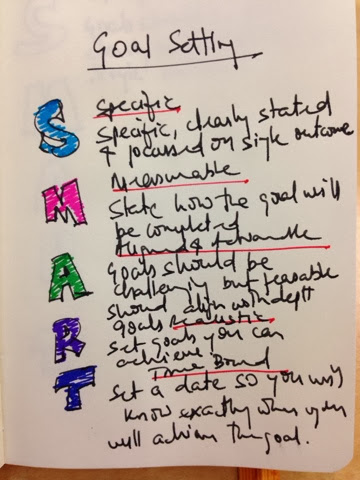 Goal Setting
S
Specific
Specific, clearly stated
& focussed on single outcome
M
Measurable
State how the goal will
be completed
A
Aligned & Achievable
Goals should be
challenging but feasable
should align with dept
goals Realistic
R
set goals you can
achieve.
Time Bound
T
Set a date so you will
know exactly when you
will achieve the goal.